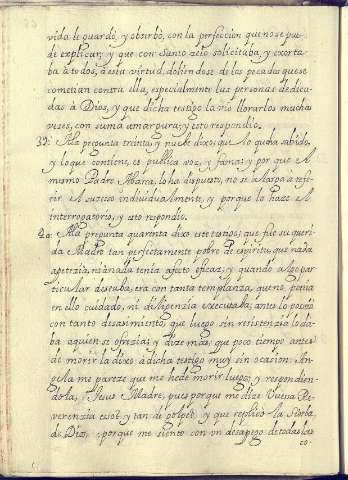 vida le guardó, y observó, con la perfeccion que no se pue-
de explicar; y que con Santo celo solicitaba, y exorta-
ba à todos, à esta virtud, doliendose de los pecados que se
cometian contra ella, especialmente las personas dedica-
das à Dios, y que dicha testigo la vio llorarlos muchas
veses, con suma amargura; y esto respondio.
39. A la pregunta treinta, y nuebe dixo; que lo que ha abido,
y lo que contiene, es publica voz, y fama; y por que el
mismo Padre lo ha dispuesto, no se alarga a refe-
rir el suceso individualmente, y porque lo haze el
interrogatorio, y esto respondio.
40. A la pregunta quarenta dixo este testigo; que fue su queri-
da Madre tan perfectamente pobre de espiritu, que nada
apetezia, ni à nada tenia afecto eficaz; y quando algo par-
ticular deseaba, era con tanta templanza, que no, ponia
en ello cuidado, ni diligenzia executaba; antes lo poseia
con tanto desasimiento, que luego sin resistenzia lo da-
ba a quien se ofrezia; y dize mas, que poco tiempo antes
de morir la dixo à dicha testigo muy sin ocasion: An-
gela me pareze que me hede morir luego; y respondien-
dola, Jesus Madre, pues porque me dize Vuesa Re-
verenzia eso? y tan de golpe? y que replicó la Sierba
de Dios, porque me siento con un desapego de todas las
co-